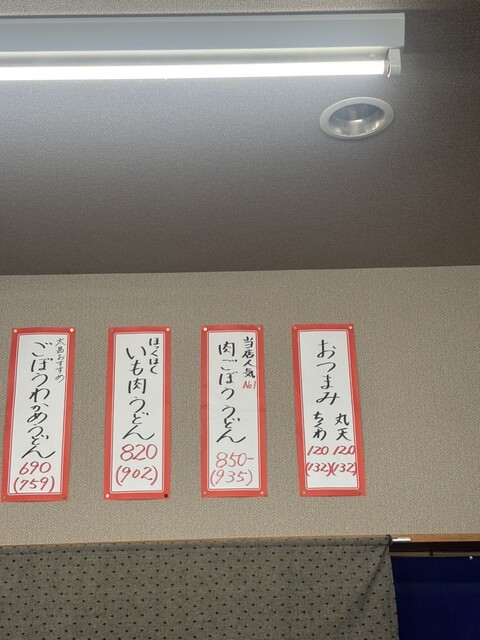 おつまみ
丸天
120
(132)
ちくわ
120
(132)
当店人気No1
肉ごぼううどん
850-
(935)
ほくほく
いも肉うどん
820
(902)
おすすめ
ごぼうわかめうどん
690
(759)